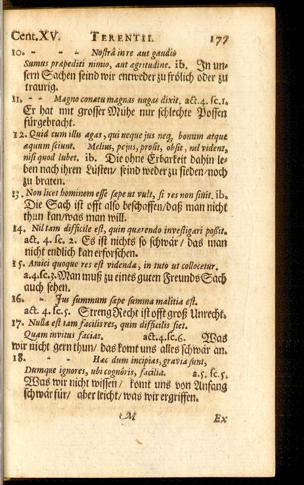 Cent. XV. TERENTII. 177
10. - - - Nostrâ in re aut gaudio
Sumus præpediti nimio, aut ægritudine. ib. In un-
sern Sachen seind wir entweder zu frölich oder zu
traurig.
11. - - - Magno conatu magnas nugas dixit. act. 4. sc. 1.
Er hat mit grosser Mühe nur schlechte Possen
fürgebracht.
12. Quid cum illis agas, qui neque jus neq, bonum atque
æquum sciunt. Melius, pejus, prosit, obsit, nil vident,
nisi quod lubet. ib. Die ohne Erbarkeit dahin le-
ben nach ihren Lüsten/ seind weder zu sieden/ noch
zu braten.
13. Non licet hominem esse sæpe ut vult, si res non sinit. ib.
Die Sach ist offt also beschaffen/ daß man nicht
thun kan/ was man will.
14. Nil tam difficile est, quin quærendo investigari possit.
act. 4. sc. 2. Es ist nichts so schwär/ das man
nicht endlich kan erforschen.
15. Amici quoque res est videnda, in tuto ut collocetur.
a. 4. sc. 3. Man muß zu eines guten Freunds Sach
auch sehen.
16. - Jus summum sæpe summa malitia est.
act. 4. sc. 5. Streng Recht ist offt groß Unrecht.
17. Nulla est tam facilis res, quin difficilis siet.
Quam invitus facias. act. 4. sc. 6. Was
wir nicht gern thun/ das komt uns alles schwär an.
18. - - Hac dum incipias, gravia sunt,
Dumque ignores, ubi cognôris, facilia. a. 5. sc. 5.
Was wir nicht wissen/ komt uns von Anfang
schwär für/ aber leicht/ was wir ergriffen.
M Ex